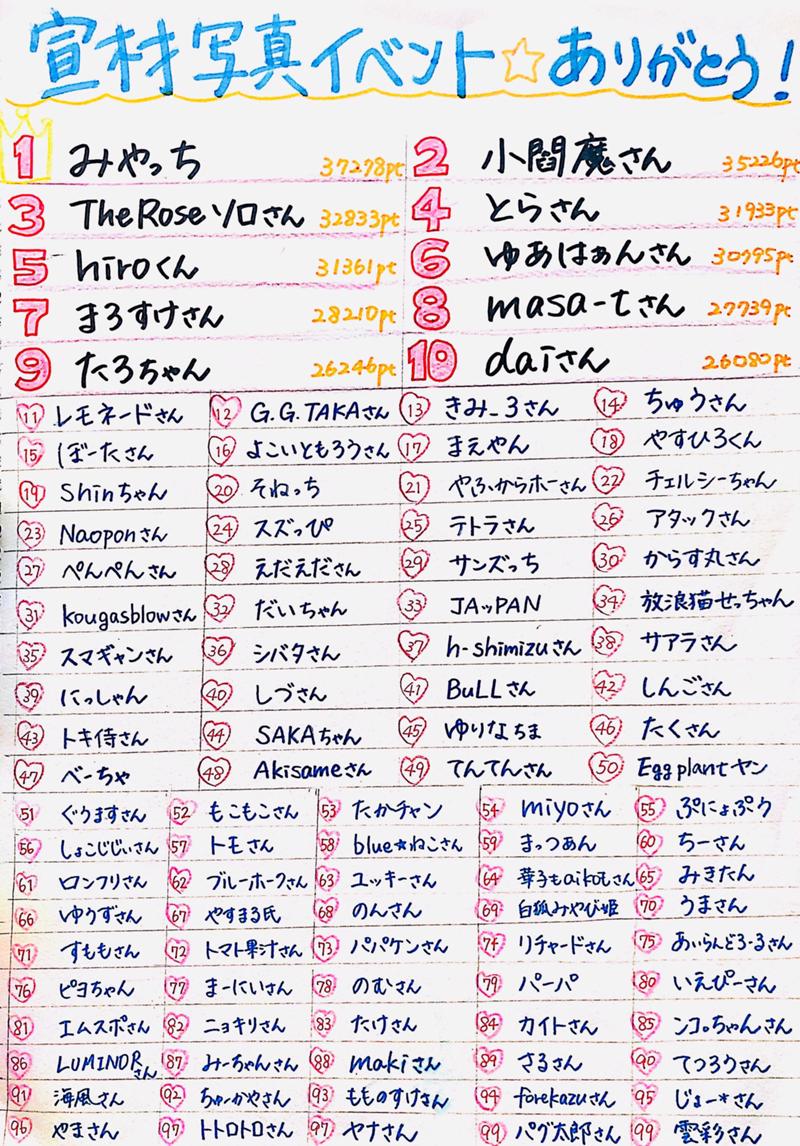 宣材写真イベント☆ありがとう!
1 みやっち 37278pt 2 小閻魔さん 35226pt
3 TheRoseソロさん 32833pt 4 とらさん 31933pt
5 hiroくん 31361pt 6 ゆあはぁんさん 30995pt
7 まろすけさん 28210pt 8 masa-tさん 27739pt
9 たろちゃん 26246pt 10 daiさん 26080pt
11 レモネードさん 12 G.G.TAKAさん 13 きみ_3さん 14 ちゅうさん
15 ぼーたさん 16 よこいともろうさん 17 まえやん 18 やすひろくん
19 Shinちゃん 20 そねっち 21 やふからホーさん 22 チェルシーちゃん
23 Naoponさん 24 スズっぴ 25 テトラさん 26 アタックさん
27 ぺんぺんさん 28 えだえださん 29 サンズっち 30 からす丸さん
31 kougasblowさん 32 だいちゃん 33 JAッPAN 34 放浪猫せっちゃん
35 スマギャンさん 36 シバタさん 37 h-shimizuさん 38 サアラさん
39 にっしゃん 40 しづさん 41 BuLLさん 42 しんごさん
43 トキ侍さん 44 SAKAちゃん 45 ゆりなちま 46 たくさん
47 べーちゃ 48 Akisameさん 49 てんてんさん 50 Eggplantヤン
51 ぐうますさん 52 もこもこさん 53 たかチャン 54 miyoさん 55 ぷにょぷう
56 しょこじじぃさん 57 トモさん 58 blue★ねこさん 59 まっつあん 60 ちーさん
61 ロンフリさん 62 ブルーホークさん 63 ユッキーさん 64 華子もaikoもさん 65 みきたん
66 ゆうずさん 67 やすまる氏 68 のんさん 69 白狐みやび姫 70 うまさん
71 すももさん 72 トマト果汁さん 73 パパケンさん 74 リチャードさん 75 あいらんどろーるさん
76 ピヨちゃん 77 まーにいさん 78 のむさん 79 パーパ 80 いえぴーさん
81 エムスポさん 82 ニョキリさん 83 たけさん 84 カイトさん 85 ンコ。ちゃんさん
86 LUMINORさん 87 みーちゃんさん 88 makiさん 89 さるさん 90 てつろうさん
91 海風さん 92 ちゅーかやさん 93 もものすけさん 94 forekazuさん 95 じょー*さん
96 やまさん 97 トトロトロさん 97 ヤナさん 99 パグ太郎さん 99 雲彩さん